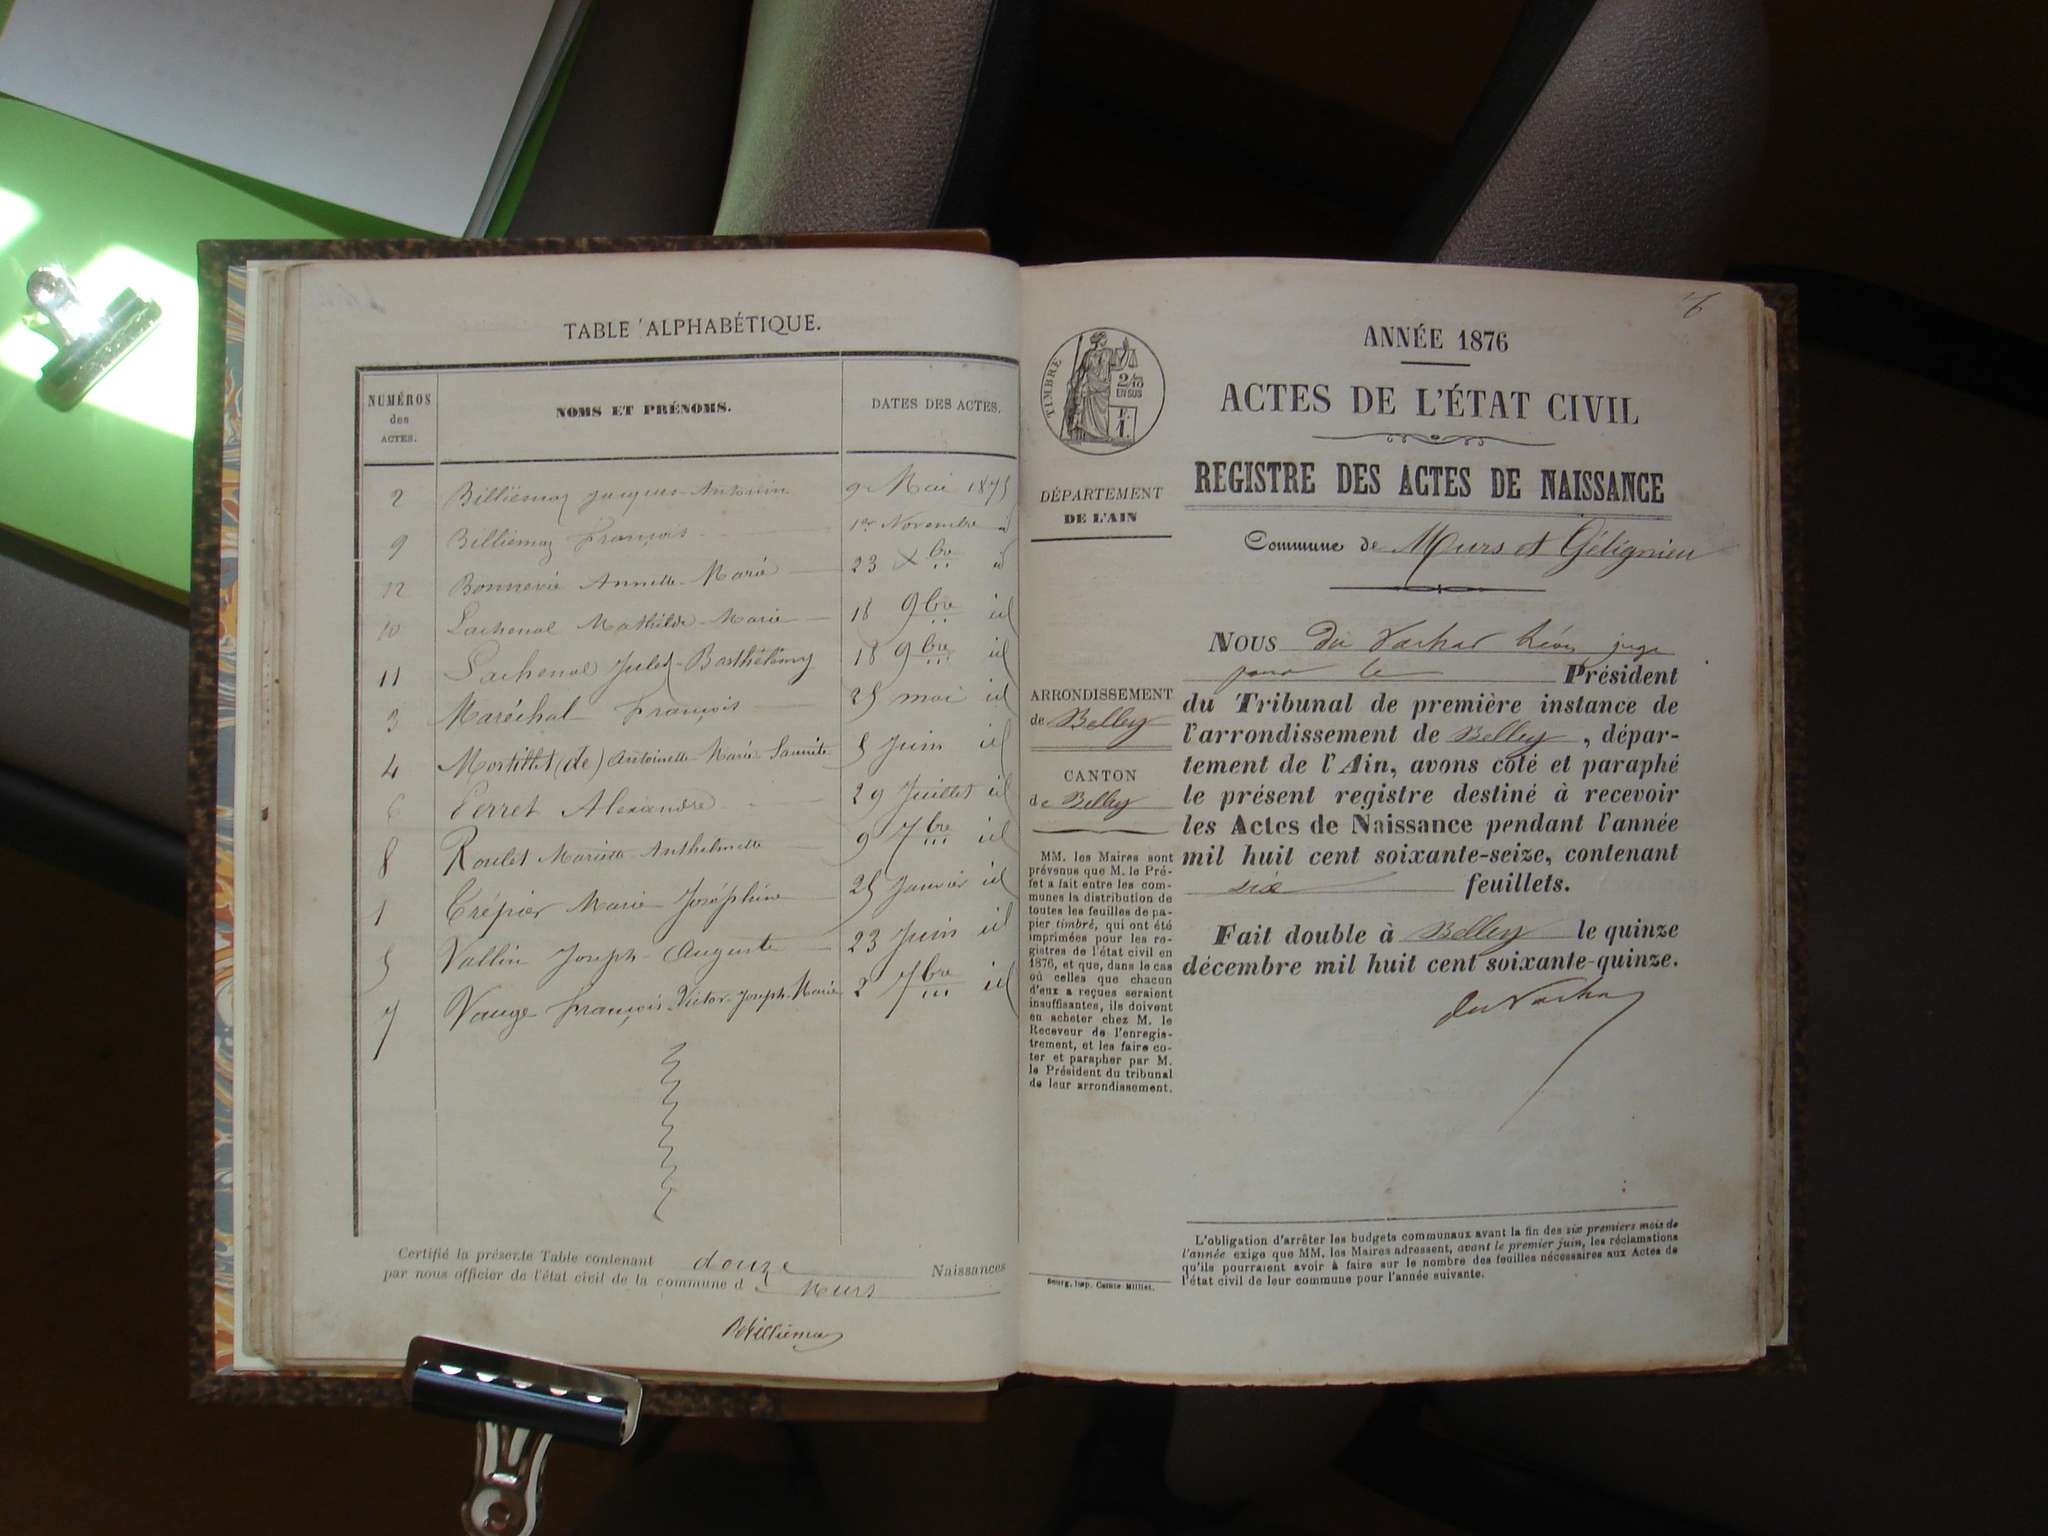 TABLE ALPHABÉTIQUE.
NUMÉROS des ACTES. NOMS ET PRÉNOMS. DATES DES ACTES.
2 Billiemaz Jacques-Antonin 9 Mai 1875
9 Billiemaz François 1er Novembre id
12 Bonnevie Annette-Marie 23 Xbre id
10 Lachenal Mathilde-Marie 18 9bre id
11 Lachenal Jules-Barthélémy 18 9bre id
3 Maréchal François 25 mai id
4 Mortillet (de) Antoinette-Marie 5 Juin id
6 Perret Alexandre 29 Juillet id
8 Roulet Mariette Anthelmette 9 7bre id
1 Trépier Marie Joséphine 25 Janvier id
5 Vallin Joseph-Auguste 23 Juin id
7 Vauge François-Victor-Joseph-Marie 2 7bre id
Certifié la présente Table contenant douze Naissances
par nous officier de l'état civil de la commune d Murs
Billiemaz
6
TIMBRE
2/10
EN SUS
ANNÉE 1876
ACTES DE L'ÉTAT CIVIL
REGISTRE DES ACTES DE NAISSANCE
Commune de Murs et Gélignieu
DÉPARTEMENT
DE L'AIN
ARRONDISSEMENT
de Belley
CANTON
de Belley
MM. les Maires sont
prévenus que M. le Pré-
fet a fait entre les com-
munes la distribution de
toutes les feuilles de pa-
pier timbré, qui ont été
imprimées pour les re-
gistres de l'état civil en
1876, et que, dans le cas
où celles que chacun
d'eux a reçues seraient
insuffisantes, ils doivent
en acheter chez M. le
Receveur de l'enregis-
trement, et les faire co-
ter et parapher par M.
le Président du tribunal
de leur arrondissement.
Bourg, imp. Comte-Milliet.
NOUS du Vachat Léon juge
pour le Président
du Tribunal de première instance de
l'arrondissement de Belley, dépar-
tement de l'Ain, avons coté et paraphé
le présent registre destiné à recevoir
les Actes de Naissance pendant l'année
mil huit cent soixante-seize, contenant
six feuillets.
Fait double à Belley le quinze
décembre mil huit cent soixante-quinze.
du Vachat
L'obligation d'arrêter les budgets communaux avant la fin des six premiers mois de
l'année exige que MM. les Maires adressent, avant le premier juin, les réclamations
qu'ils pourraient avoir à faire sur le nombre des feuilles nécessaires aux Actes de
l'état civil de leur commune pour l'année suivante.